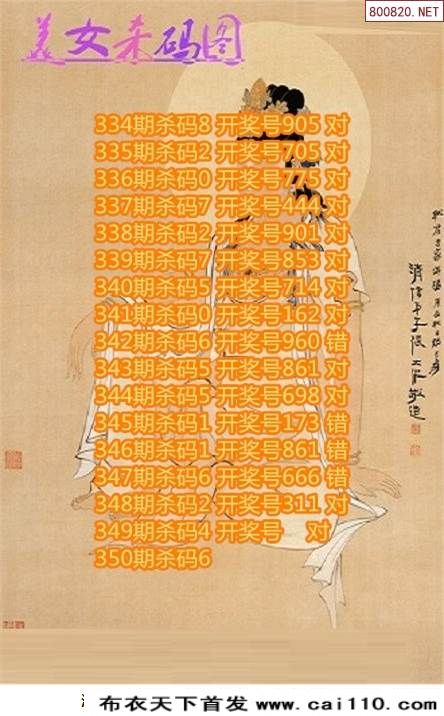 800820.NET
美女杀码图
334期杀码8 开奖号905 对
335期杀码2 开奖号705 对
336期杀码0 开奖号775 对
337期杀码7 开奖号444 对
338期杀码2 开奖号901 对
339期杀码7 开奖号853 对
340期杀码5 开奖号714 对
341期杀码0 开奖号162 对
342期杀码6 开奖号960 错
343期杀码5 开奖号861 对
344期杀码5 开奖号698 对
345期杀码1 开奖号173 错
346期杀码1 开奖号861 错
347期杀码6 开奖号666 错
348期杀码2 开奖号311 对
349期杀码4 开奖号 对
350期杀码6
布衣天下首发 www.cai110.com